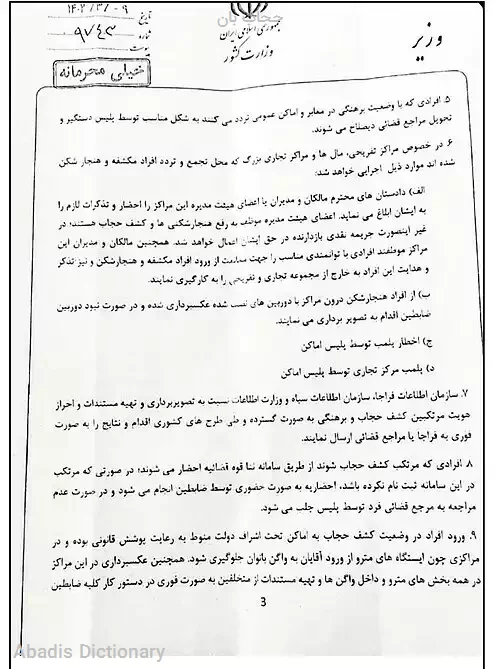 جمهوری اسلامی ایران
وزارت کشور
وزیر
تاریخ
شماره ۹۷۴۳
پیوست
خیلی محرمانه
۵. افرادی که با وضعیت برهنگی در معابر و اماکن عمومی تردد می کنند به شکل مناسب توسط پلیس دستگیر و
تحویل مراجع قضائی ذیصلاح می شوند.
۶. در خصوص مراکز تفریحی، مال ها و مراکز تجاری بزرگ که محل تجمع و تردد افراد مکشفه و هنجار شکن
شده اند موارد ذیل اجرایی خواهد شد:
الف) دادستان های محترم مالکان و مدیران یا اعضای هیئت مدیره این مراکز را احضار و تذکرات لازم را
به ایشان ابلاغ می نماید. اعضای هیئت مدیره موظف به رفع هنجارشکنی ها و کشف حجاب هستند؛ در
غیر اینصورت جریمه نقدی بازدارنده در حق ایشان اعمال خواهد شد. همچنین مالکان و مدیران این
مراکز موظفند افرادی با توانمندی مناسب را جهت ممانعت از ورود افراد مکشفه و هنجارشکن و نیز تذکر
و هدایت این افراد به خارج از مجموعه تجاری و تفریحی را به کارگیری نمایند.
ب) از افراد هنجارشکن درون مراکز با دوربین های نصب شده عکسبرداری شده و در صورت نبود دوربین
ضابطین اقدام به تصویر برداری می نمایند.
ج) اخطار پلمب توسط پلیس اماکن
د) پلمب مرکز تجاری توسط پلیس اماکن
۷. سازمان اطلاعات فراجا، سازمان اطلاعات سپاه و وزارت اطلاعات نسبت به تصویربرداری و تهیه مستندات و احراز
هویت مرتکبین کشف حجاب و برهنگی به صورت گسترده و طی طرح های کشوری اقدام و نتایج را به صورت
فوری به فراجا یا مراجع قضائی ارسال نمایند.
۸. افرادی که مرتکب کشف حجاب شوند از طریق سامانه ثنا قوه قضائیه احضار می شوند؛ در صورتی که مرتکب
در این سامانه ثبت نام نکرده باشد، احضاریه به صورت حضوری توسط ضابطین انجام می شود و در صورت عدم
مراجعه به مرجع قضائی فرد توسط پلیس جلب می شود.
۹. ورود افراد در وضعیت کشف حجاب به اماکن تحت اشراف دولت منوط به رعایت پوشش قانونی بوده و در
مراکزی چون ایستگاه های مترو از ورود آقایان به واگن بانوان جلوگیری شود. همچنین عکسبرداری در این مراکز
در همه بخش های مترو و داخل واگن ها و تهیه مستندات از متخلفین به صورت فوری در دستور کار کلیه ضابطین
3
Abadis Dictionary